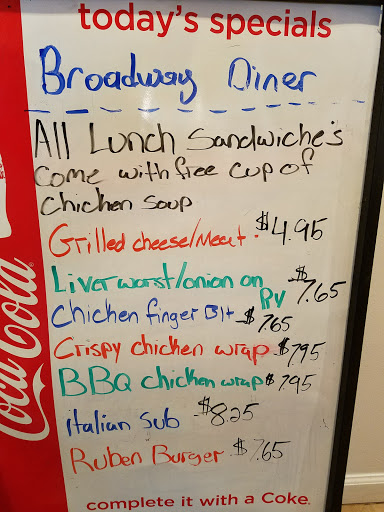 today's specials
Broadway Diner
All Lunch Sandwiche's
Come with free cup of
Chicken Soup
Grilled cheese/Meat. $4.95
Liverworst/onion on Rv $7.65
Chicken finger Blt $7.65
Crispy chicken wrap $795
BBQ chicken wrap $795
italian Sub $8.25
Ruben Burger $7.65
complete it with a Coke.
Coca-Cola